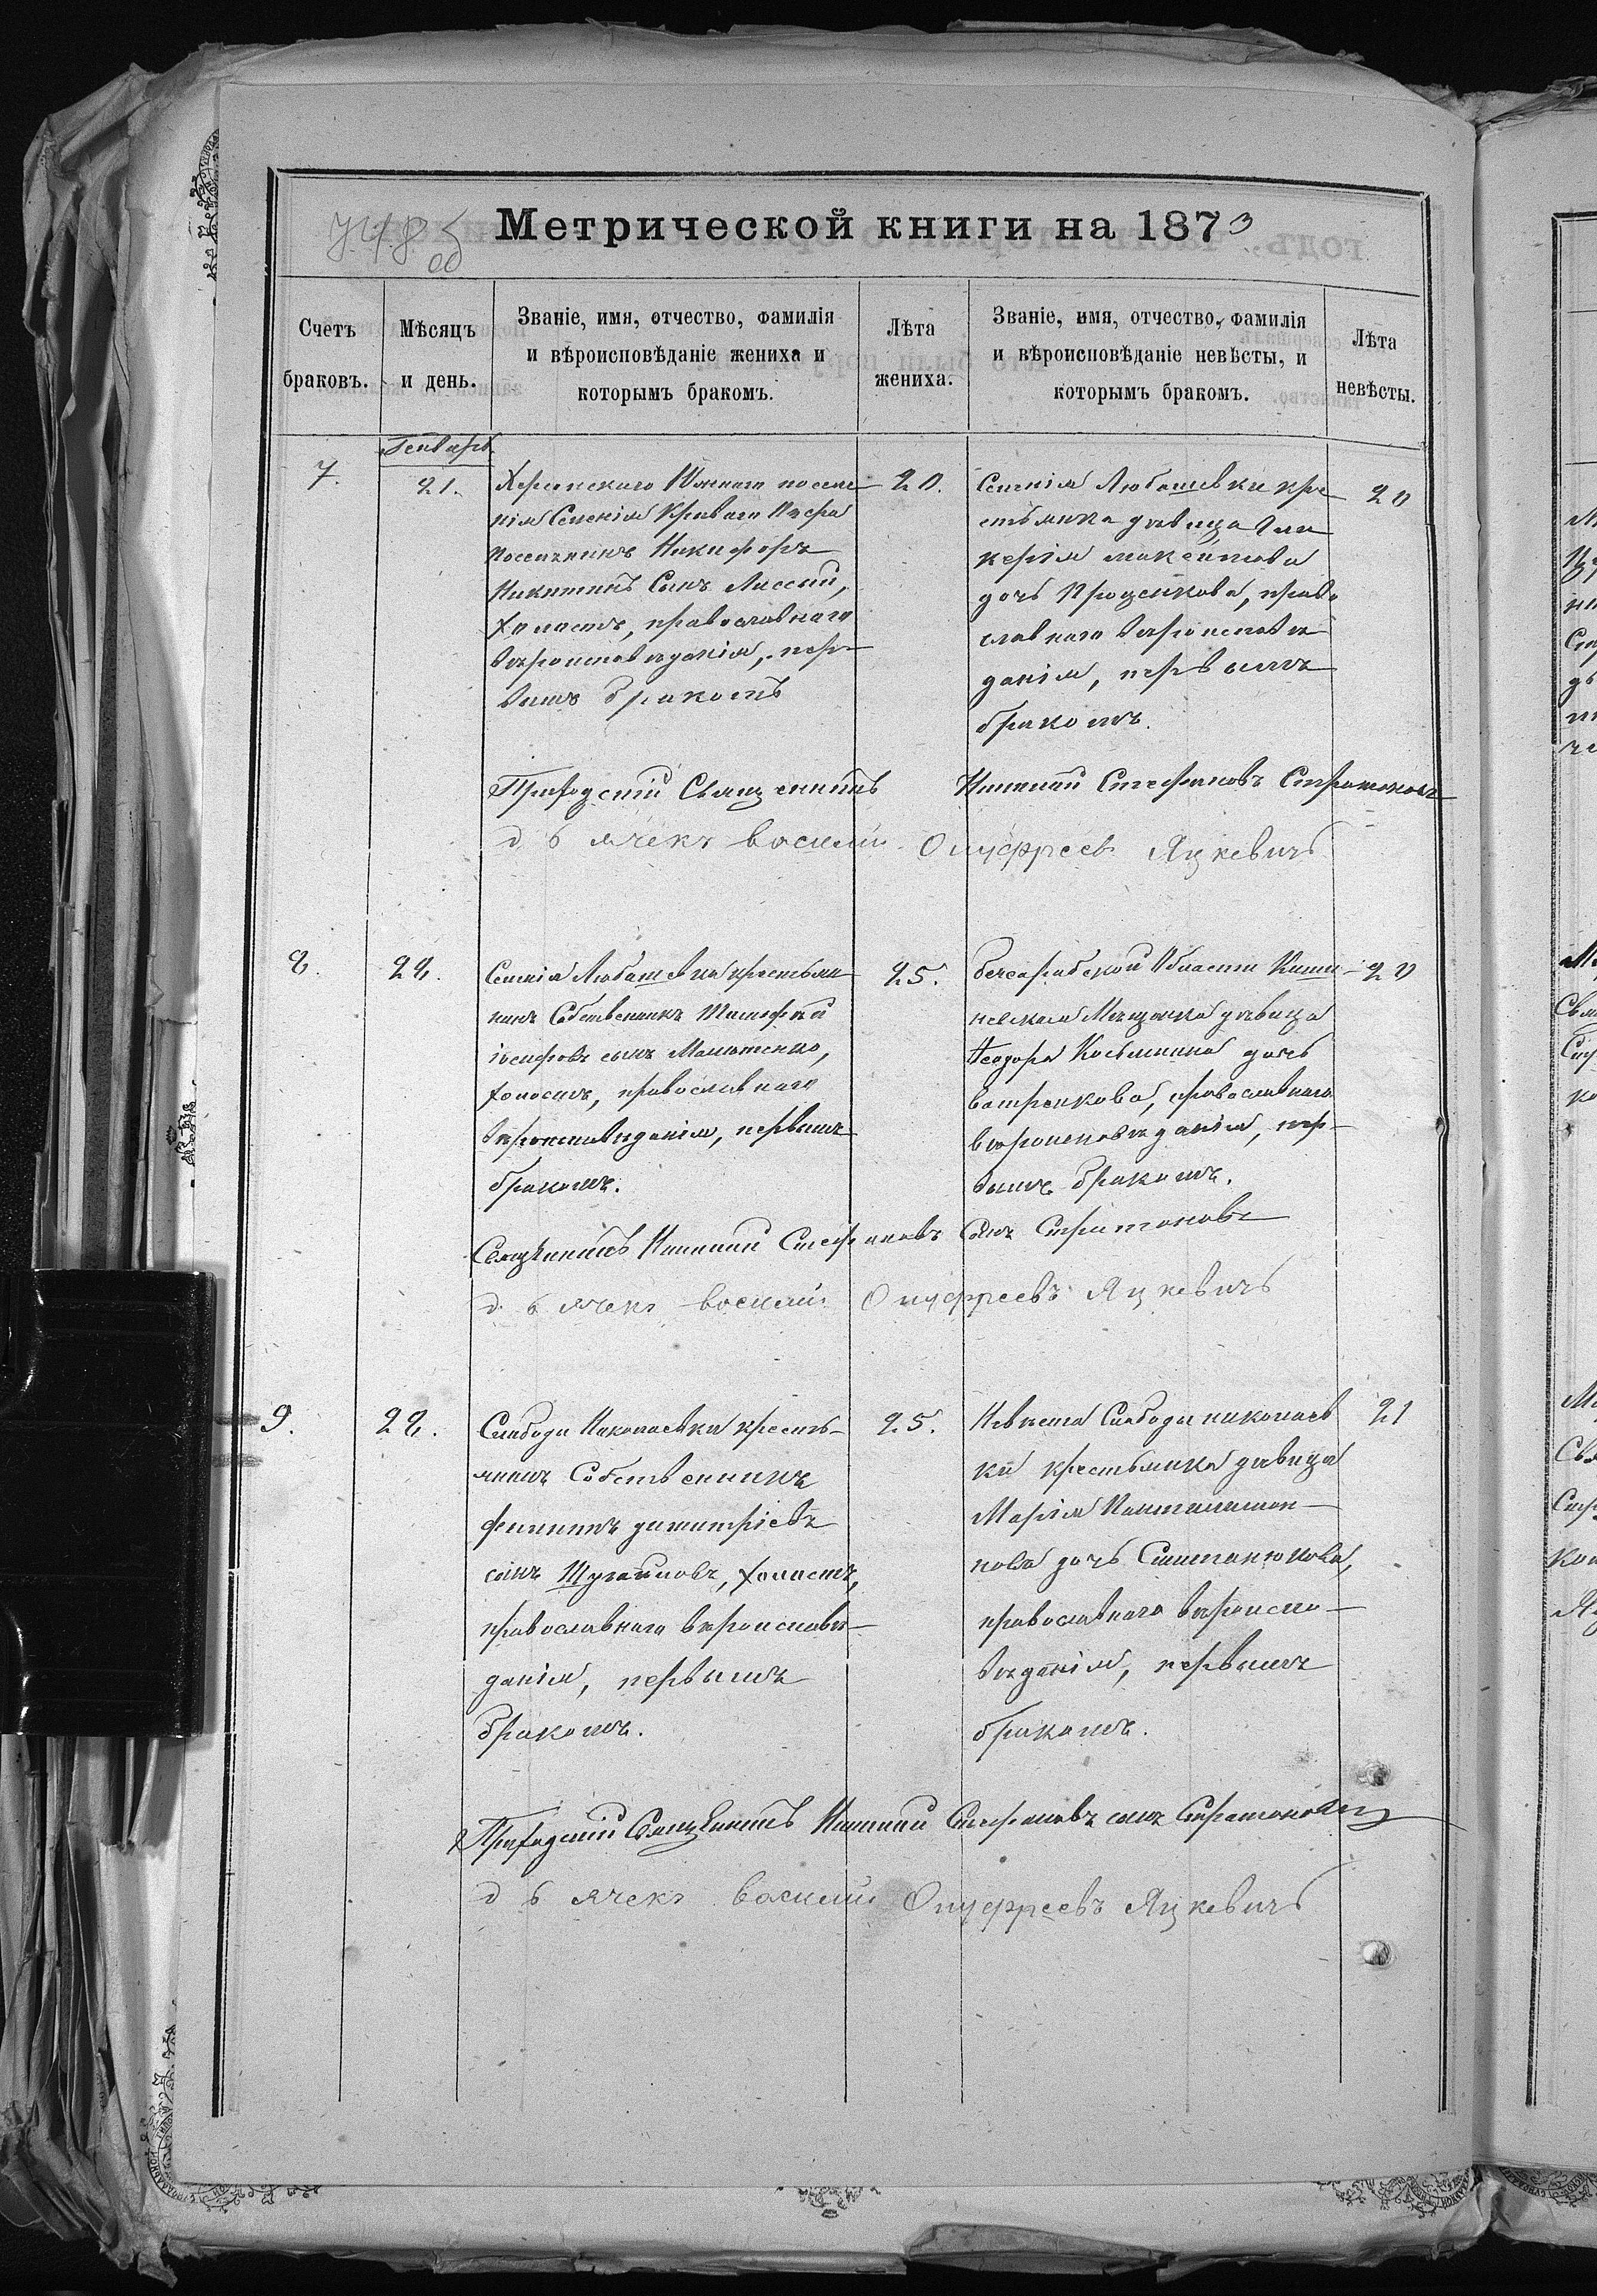 Метрической книги на 1873
Счетъ браковъ.
Мѣсяцъ и день.
Званіе, имя, отчество, фамилія
и вѣроисповѣданіе жениха и
которымъ бракомъ.
Лѣта жениха.
Званіе, имя, отчество, фамилія
и вѣроисповѣданіе невѣсты, и
которымъ бракомъ.
Лѣта невѣсты.
Генварь
7.
21.
Херсонскаго Южнаго поселе
нія Селенія Криваго Озера
поселянинъ Никифоръ
Никитинъ Сынъ Лиссый,
холостъ, православнаго
вѣроисповѣданія, пер-
вымъ бракомъ
20.
Селенія Любашевки кре
стьянка дѣвица Гли
керія максимова
дочь Проценкова, право
славнаго вѣроисповѣ
данія, первымъ
бракомъ.
20
Приходскій Священникъ Стефановъ Стратоновъ
дьячекъ василій Онуфреевъ Яцкевичъ
8.
22.
Селенія Любашевки крестья
нинъ Собственникъ Тимофей
іосифовъ сынъ Малютенко,
холостъ, православнаго
вѣроисповѣданія, первымъ
бракомъ.
25.
бессарабской Области Киши-
невская Мѣщанка дѣвица
Ѳеодора Косьмина дочь
ватренкова, православнаго
вѣроисповѣданія, пер-
вымъ бракомъ.
20
Священникъ Стефановъ Сынъ Стратоновъ
дьячекъ василій Онуфреевъ Яцкевичъ
9.
22.
Слободи Николаевки кресть-
янинъ Собственникъ
филиппъ димитріевъ
сынъ холостъ,
православнаго вѣроисповѣ-
данія, первымъ
бракомъ.
25.
Невѣста Слободи николаев
ки крестьянка дѣвица
Марія Пантилимон-
нова дочь
православнаго вѣроиспо-
вѣданія, первымъ
бракомъ.
21
Приходскій Священникъ Стефановъ сынъ Стратоновъ
дьячекъ василій Онуфреевъ Яцкевичъ